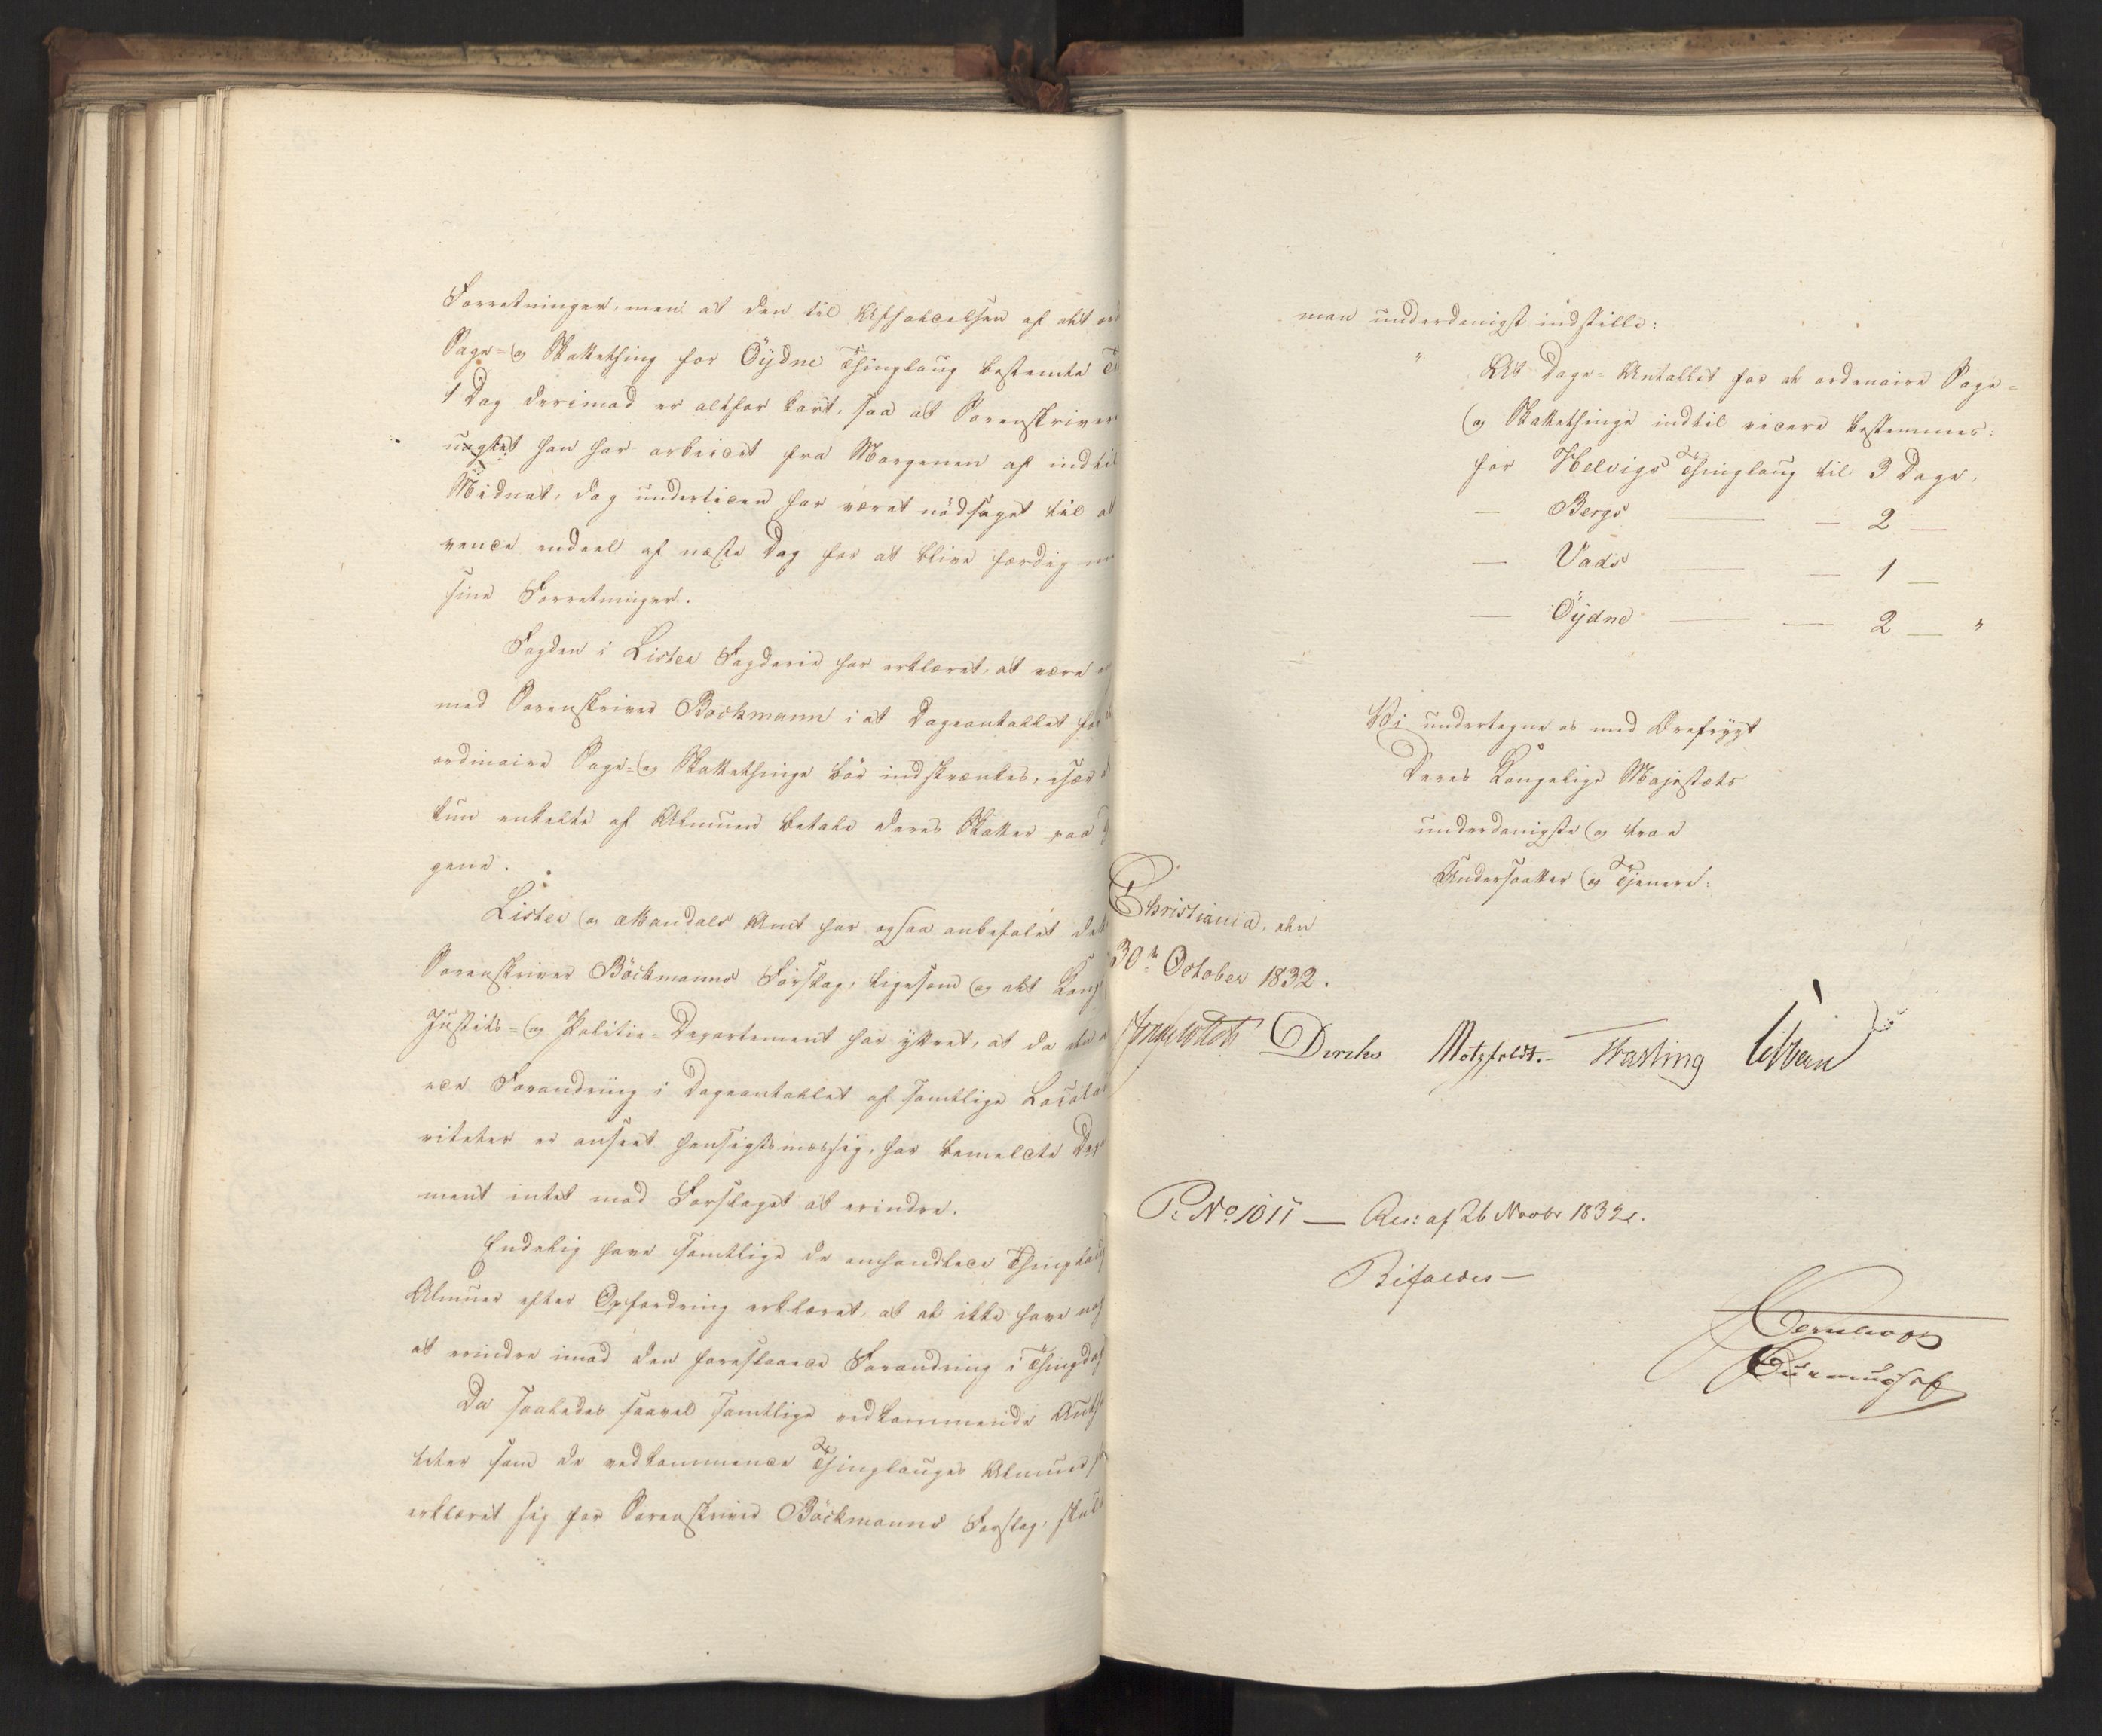 Forretninger, men at den til Afholdelsen af det ord
Sage- og Skattething for Öÿdne Thinglaug bestemte Ti
1 Dag derimod er altfor kort, saa at Sorenskriver
uagtet han har arbeidet fra Morgenen af indtil
Midnat, dog undertiden har været nödsaget til at
vende endeel af næste Dag for at blive færdig m
sine Forretninger.
Fogden i Lister Fogderie har erklæret, at være e
med Sorenskriver Bockmann i at Dageantallet for d
ordinaire Sage- og Skattethinge bör indskrænkes, især d
kun enkelte af Almuen betale deres Skatter paa
gene.
Lister og Mandals Amt har ogsaa anbefalet dette
Sorenskriver Böckmanns Forslag, ligesom og det Kongl
Justits- og Politie-Departement har yttret, at da den
ede Forandring i Dageantallet af samtlige Local-
riteter er anseet hensigtsmæssig, har bemeldte Dep
ment intet mod Forslaget at erindre.
Endelig have samtlige de omhandlede Thinglaug
Almuer efter Opfordring erklæret, at de ikke have nog
at erindre imod den foreslaaede Forandring i Thingdag
Da saaledes saavel samtlige vedkommende Auth
teter som de vedkommende Thinglauges Almuer
erklæret sig for Sorenskriver Böckmanns Forslag, skul
man underdanigst indstille:
" At Dage-Antallet for de ordenaire Sage-
og Skattethinge indtil videre bestemmes:
for Helvigs Thinglaug til 3 Dage,
— Bergs — — 2 —
— Vads — — 1 —
— Öÿdne — — 2 — "
Vi undertegne os med Ærefrygt
Deres Kongelige Majestæts
underdanigste og troe
Undersaatter og Tjenere:
Christiania, den
30te October 1832.
Diriks Motzfeldt. Fasting Vibean
P: No. 1011 — Res: af 26 Novbr 1832.
Bifaldes —